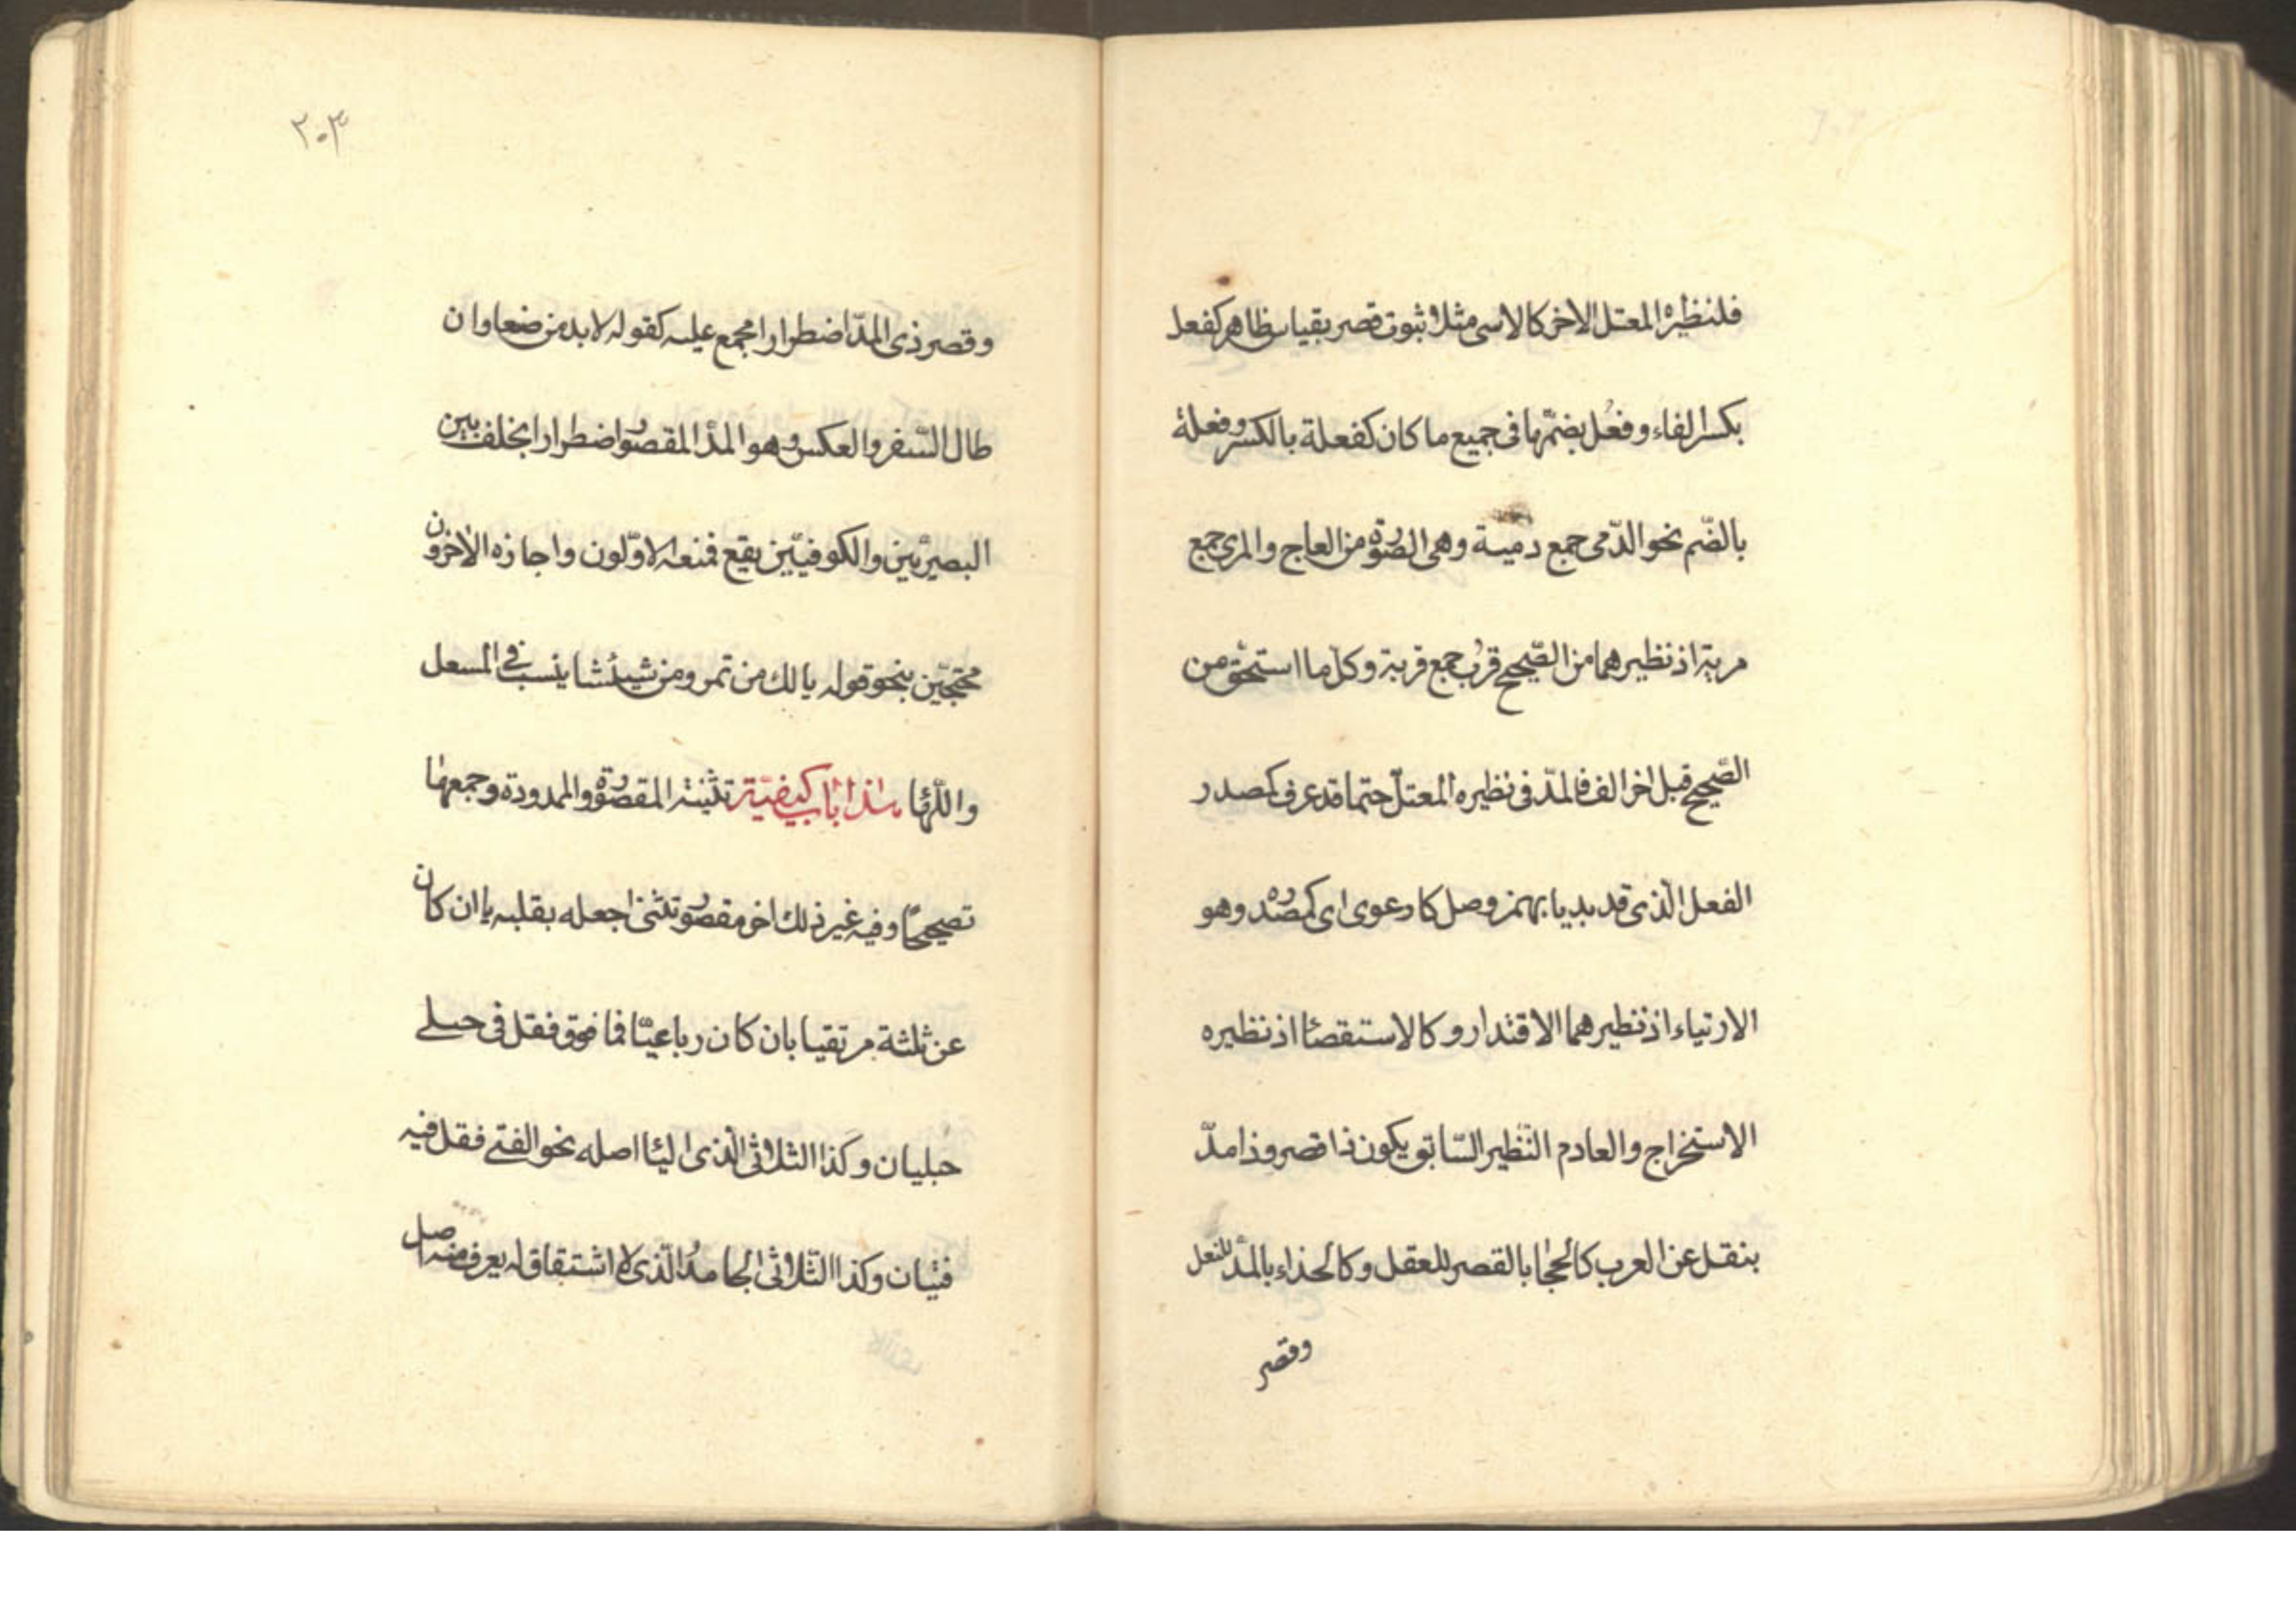 فلنظيره المعتل الاخر كالاسى مثلا ثبوت قصر بقياس ظاهر كفعل
بكسر الفاء وفعُل بضمّها فى جميع ما كان كفعلة بالكسر وفعلة
بالضّم نحو الدّمى جمع دمية وهى الصّورة من العاج والمرى جمع
مرية اذ نظيرهما من الصّحيح قرب جمع قربة وكل ما استحق من
الصّحيح قبل اخر الف فالمدّ فى نظيره المعتلّ حتما قد عرف كمصدر
الفعل الّذى قد بديا بهمز وصل كارعوى اى كمصدره وهو
الارتياء اذ نظيرهما الاقتدار وكالاستقصا اذ نظيره
الاستخراج والعادم النّظير السّابق يكون ذا قصر وذا مدّ
بنقل عن العرب كالحجا بالقصر للعقل وكالحذاء بالمدّ للنعل
وقصر
٢٠٣
وقصر ذى المدّ اضطرارا مجمع عليه كقوله لا بد من صنعا وان
طال السّفر والعكس وهو المدّ المقصور اضطرارا بخلف بين
البصريّين والكوفيّين يقع فمنعه الاوّلون واجازه الاخرون
محتجّين بنحو قوله يا لك من تمر ومن شيشا ينشب فى المسعل
واللّها هذا باب كيفيّة تثنية المقصورة والممدودة وجمعهما
تصحيحًا وفيه غير ذلك اخر مقصور تثنى اجعله بقلبه يا ان كان
عن ثلثة مرتقيا بان كان رباعيّا فما فوق فقل فى حبلى
حبليان وكذا الثلاثى الّذى اليا اصله نحو الفتى فقل فيه
فتيان وكذا الثّلاثى الجامدُ الّذى لا اشتقاق له يعرف منه اصل